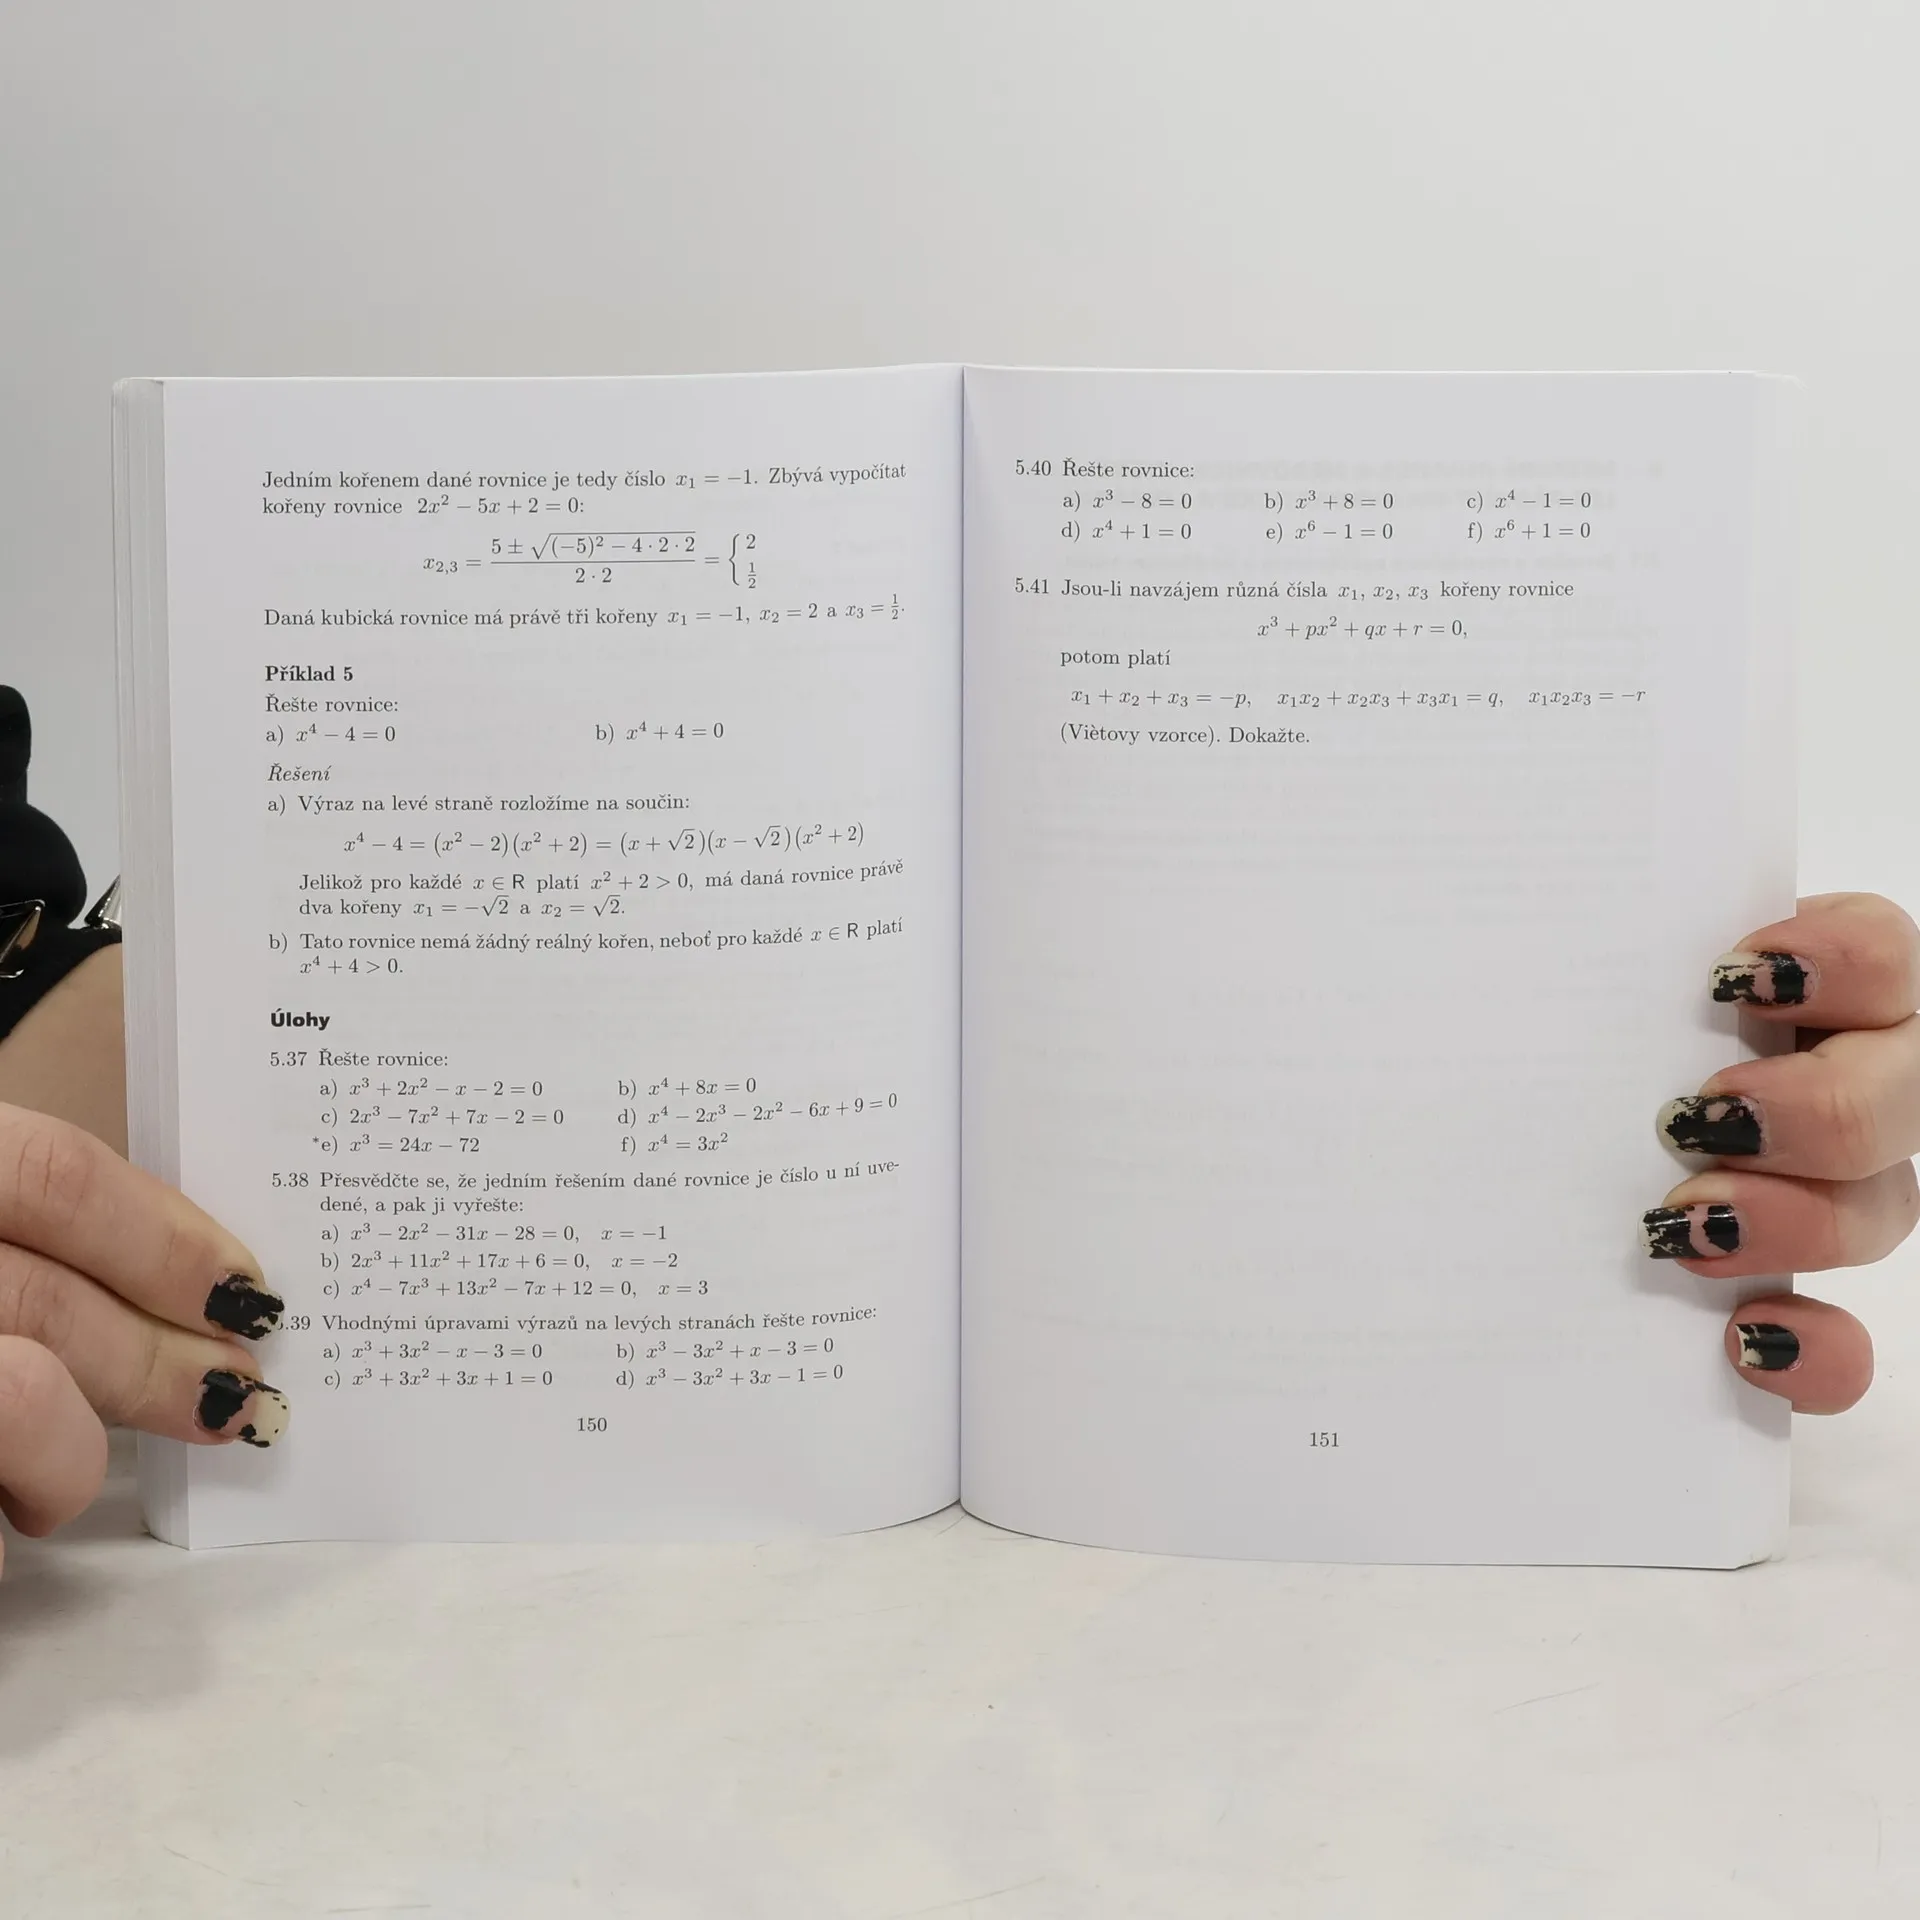 Jedním kořenem dané rovnice je tedy číslo x₁ = −1. Zbývá vypočítat
kořeny rovnice 2x² − 5x + 2 = 0:
x₂,₃ = (5 ± √((−5)² − 4 · 2 · 2)) / (2 · 2) = { 2, 1/2
Daná kubická rovnice má právě tři kořeny x₁ = −1, x₂ = 2 a x₃ = 1/2.
Příklad 5
Řešte rovnice:
a) x⁴ − 4 = 0 b) x⁴ + 4 = 0
Řešení
a) Výraz na levé straně rozložíme na součin:
x⁴ − 4 = (x² − 2)(x² + 2) = (x + √2)(x − √2)(x² + 2)
Jelikož pro každé x ∈ R platí x² + 2 > 0, má daná rovnice právě
dva kořeny x₁ = −√2 a x₂ = √2.
b) Tato rovnice nemá žádný reálný kořen, neboť pro každé x ∈ R platí
x⁴ + 4 > 0.
Úlohy
5.37 Řešte rovnice:
a) x³ + 2x² − x − 2 = 0 b) x⁴ + 8x = 0
c) 2x³ − 7x² + 7x − 2 = 0 d) x⁴ − 2x³ − 2x² − 6x + 9 = 0
*e) x³ = 24x − 72 f) x⁴ = 3x²
5.38 Přesvědčte se, že jedním řešením dané rovnice je číslo u ní uve-
dené, a pak ji vyřešte:
a) x³ − 2x² − 31x − 28 = 0, x = −1
b) 2x³ + 11x² + 17x + 6 = 0, x = −2
c) x⁴ − 7x³ + 13x² − 7x + 12 = 0, x = 3
.39 Vhodnými úpravami výrazů na levých stranách řešte rovnice:
a) x³ + 3x² − x − 3 = 0 b) x³ − 3x² + x − 3 = 0
c) x³ + 3x² + 3x + 1 = 0 d) x³ − 3x² + 3x − 1 = 0
150
5.40 Řešte rovnice:
a) x³ − 8 = 0 b) x³ + 8 = 0 c) x⁴ − 1 = 0
d) x⁴ + 1 = 0 e) x⁶ − 1 = 0 f) x⁶ + 1 = 0
5.41 Jsou-li navzájem různá čísla x₁, x₂, x₃ kořeny rovnice
x³ + px² + qx + r = 0,
potom platí
x₁ + x₂ + x₃ = −p, x₁x₂ + x₂x₃ + x₃x₁ = q, x₁x₂x₃ = −r
(Viètovy vzorce). Dokažte.
151